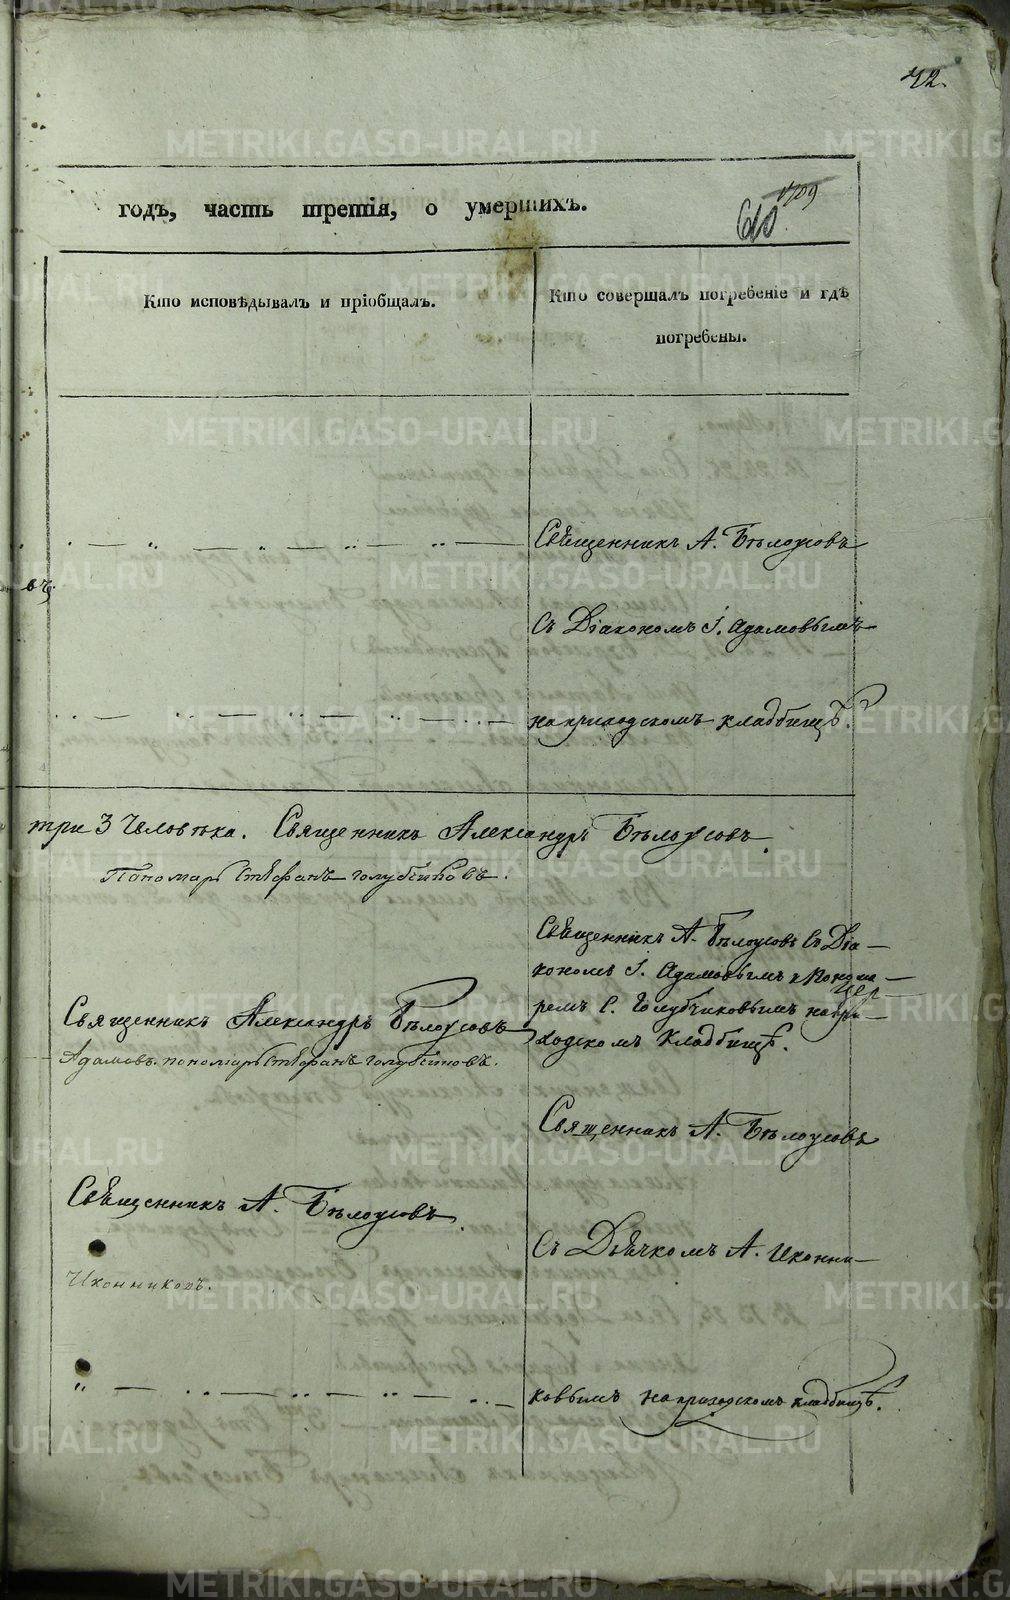 42.
годъ, часть третія, о умершихъ.
1709
610
Кто исповѣдывалъ и пріобщалъ.
Кто совершалъ погребеніе и гдѣ
погребены.
Священникъ А. Бѣлоусовъ
въ
Съ Діакономъ І. Адамовымъ
на приходскомъ кладбищѣ.
три 3 человѣка. Священникъ Александръ Бѣлоусовъ.
Пономарь Стефанъ Голубчиковъ.
Священникъ А. Бѣлоусовъ съ Діа-
кономъ І. Адамовымъ и Понома-
ремъ С. Голубчиковымъ на при-
ходскомъ кладбищѣ.
Священникъ Александръ Бѣлоусовъ
Адамовъ. пономарь Стефанъ Голубчиковъ.
Священникъ А. Бѣлоусовъ
Священникъ А. Бѣлоусовъ.
Съ Дьячкомъ А. Иконни-
Иконниковъ.
ковымъ на приходскомъ кладбищѣ.
METRIKI.GASO-URAL.RU